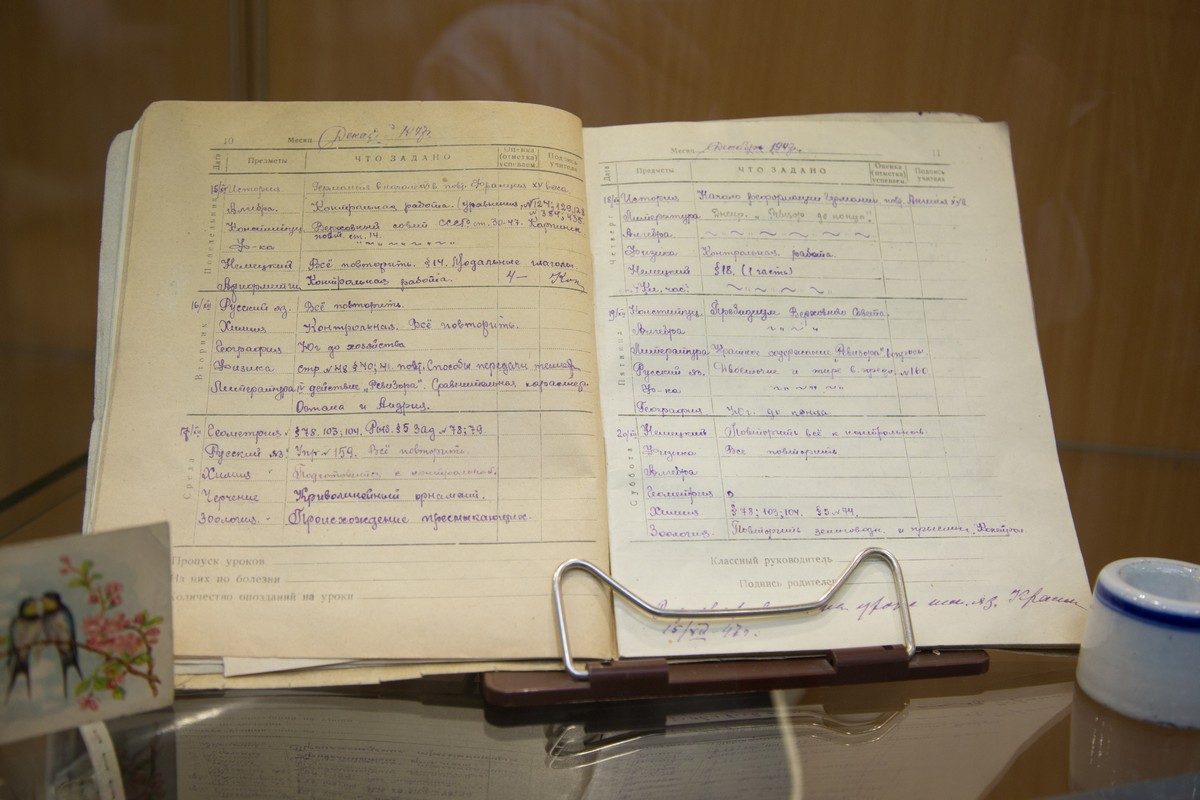 10 Месяц Декабрь 1947г.
Дата Предметы ЧТО ЗАДАНО Оценка (отметка) успеваем. Подпись учителя
Понедельник
15/XII История Германия повт. Франция XV века.
Алгебра. Контрольная работа. (Уравнения №127; 129,
№384; 430
Конституц. Верховный совет СССР ст. 30-47. Картинки
повт. ст. 14.
Ф-ка " ~ " ~ " ~ "
Немецкий Всё повторить. §14. Модальные глаголы.
Контрольная работа. 4-
Вторник
16/XII Русский яз. Всё повторить.
Химия Контрольная. Всё повторить.
География Юг до хозяйства
Физика стр №48 §40; 41. повт. Способы передачи
Литература IV действие „Ревизора". Сравнительная характер.
Остапа и Андрия.
Среда
17/XII Геометрия. §78. 103; 104. §5 Зад. №78; 79.
Русский яз. Упр № 159. Всё повторить.
Химия Подготовиться к контрольной.
Черчение Криволинейный орнамент.
Зоология. Происхождение пресмыкающих.
Пропуск уроков
Из них по болезни
Количество опозданий на уроки
Месяц Декабрь 1947г. 11
Дата Предметы ЧТО ЗАДАНО Оценка (отметка) успеваем. Подпись учителя
Четверг
18/XII История Начало реформации Германии повт. Англия XVв
Литература „Ревизор до конца".
Алгебра ~ ~ ~ ~ ~ ~
Физика Контрольная работа.
Немецкий §18. (1 часть)
Кл. час. ~ " ~ " ~
Пятница
19/XII Конституц. Президиум Верховного Совета.
Алгебра " ~ " ~ "
Литература Краткое содержание „Ревизора".
Русский яз. Двоеточие и тире в предл. №160
Ф-ка " ~ " ~ "
География Юг. до конца.
Суббота
20/XII Немецкий Повторить всё к контрольной
Физика Все повторить
Алгебра
Геометрия
Химия §78; 103; 104. §5 №44.
Зоология. Повторить земноводн. и пресмык. Контрол
Классный руководитель
Подпись родителей
на уроке ин. яз.
15/XII 47г.